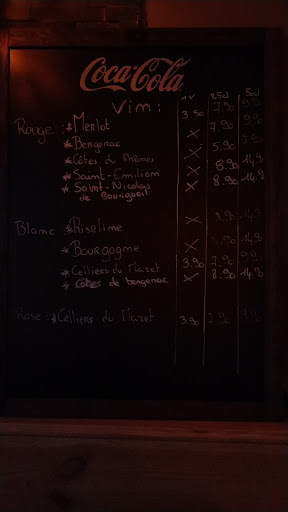 Coca-Cola
Vin :
1V 25cl 50cl
Rouge : * Merlot 3.50 7.90 9.90
* Bergerac X 7.90 9.90
* Côtes du Rhônes X 5.90
* Saint-Emilion X 8.90 14.90
* Saint-Nicolas X 8.90 14.90
de Bourgueil
Blanc : * Riseline X 8.90 14.90
* Bourgogne X 14.90
* Celliers du Mazet 3.90 7.90 9.90
* Cotes de bergerac X 8.90 14.90
Rose : * Celliers du Mazet 3.90 7.90 9.90